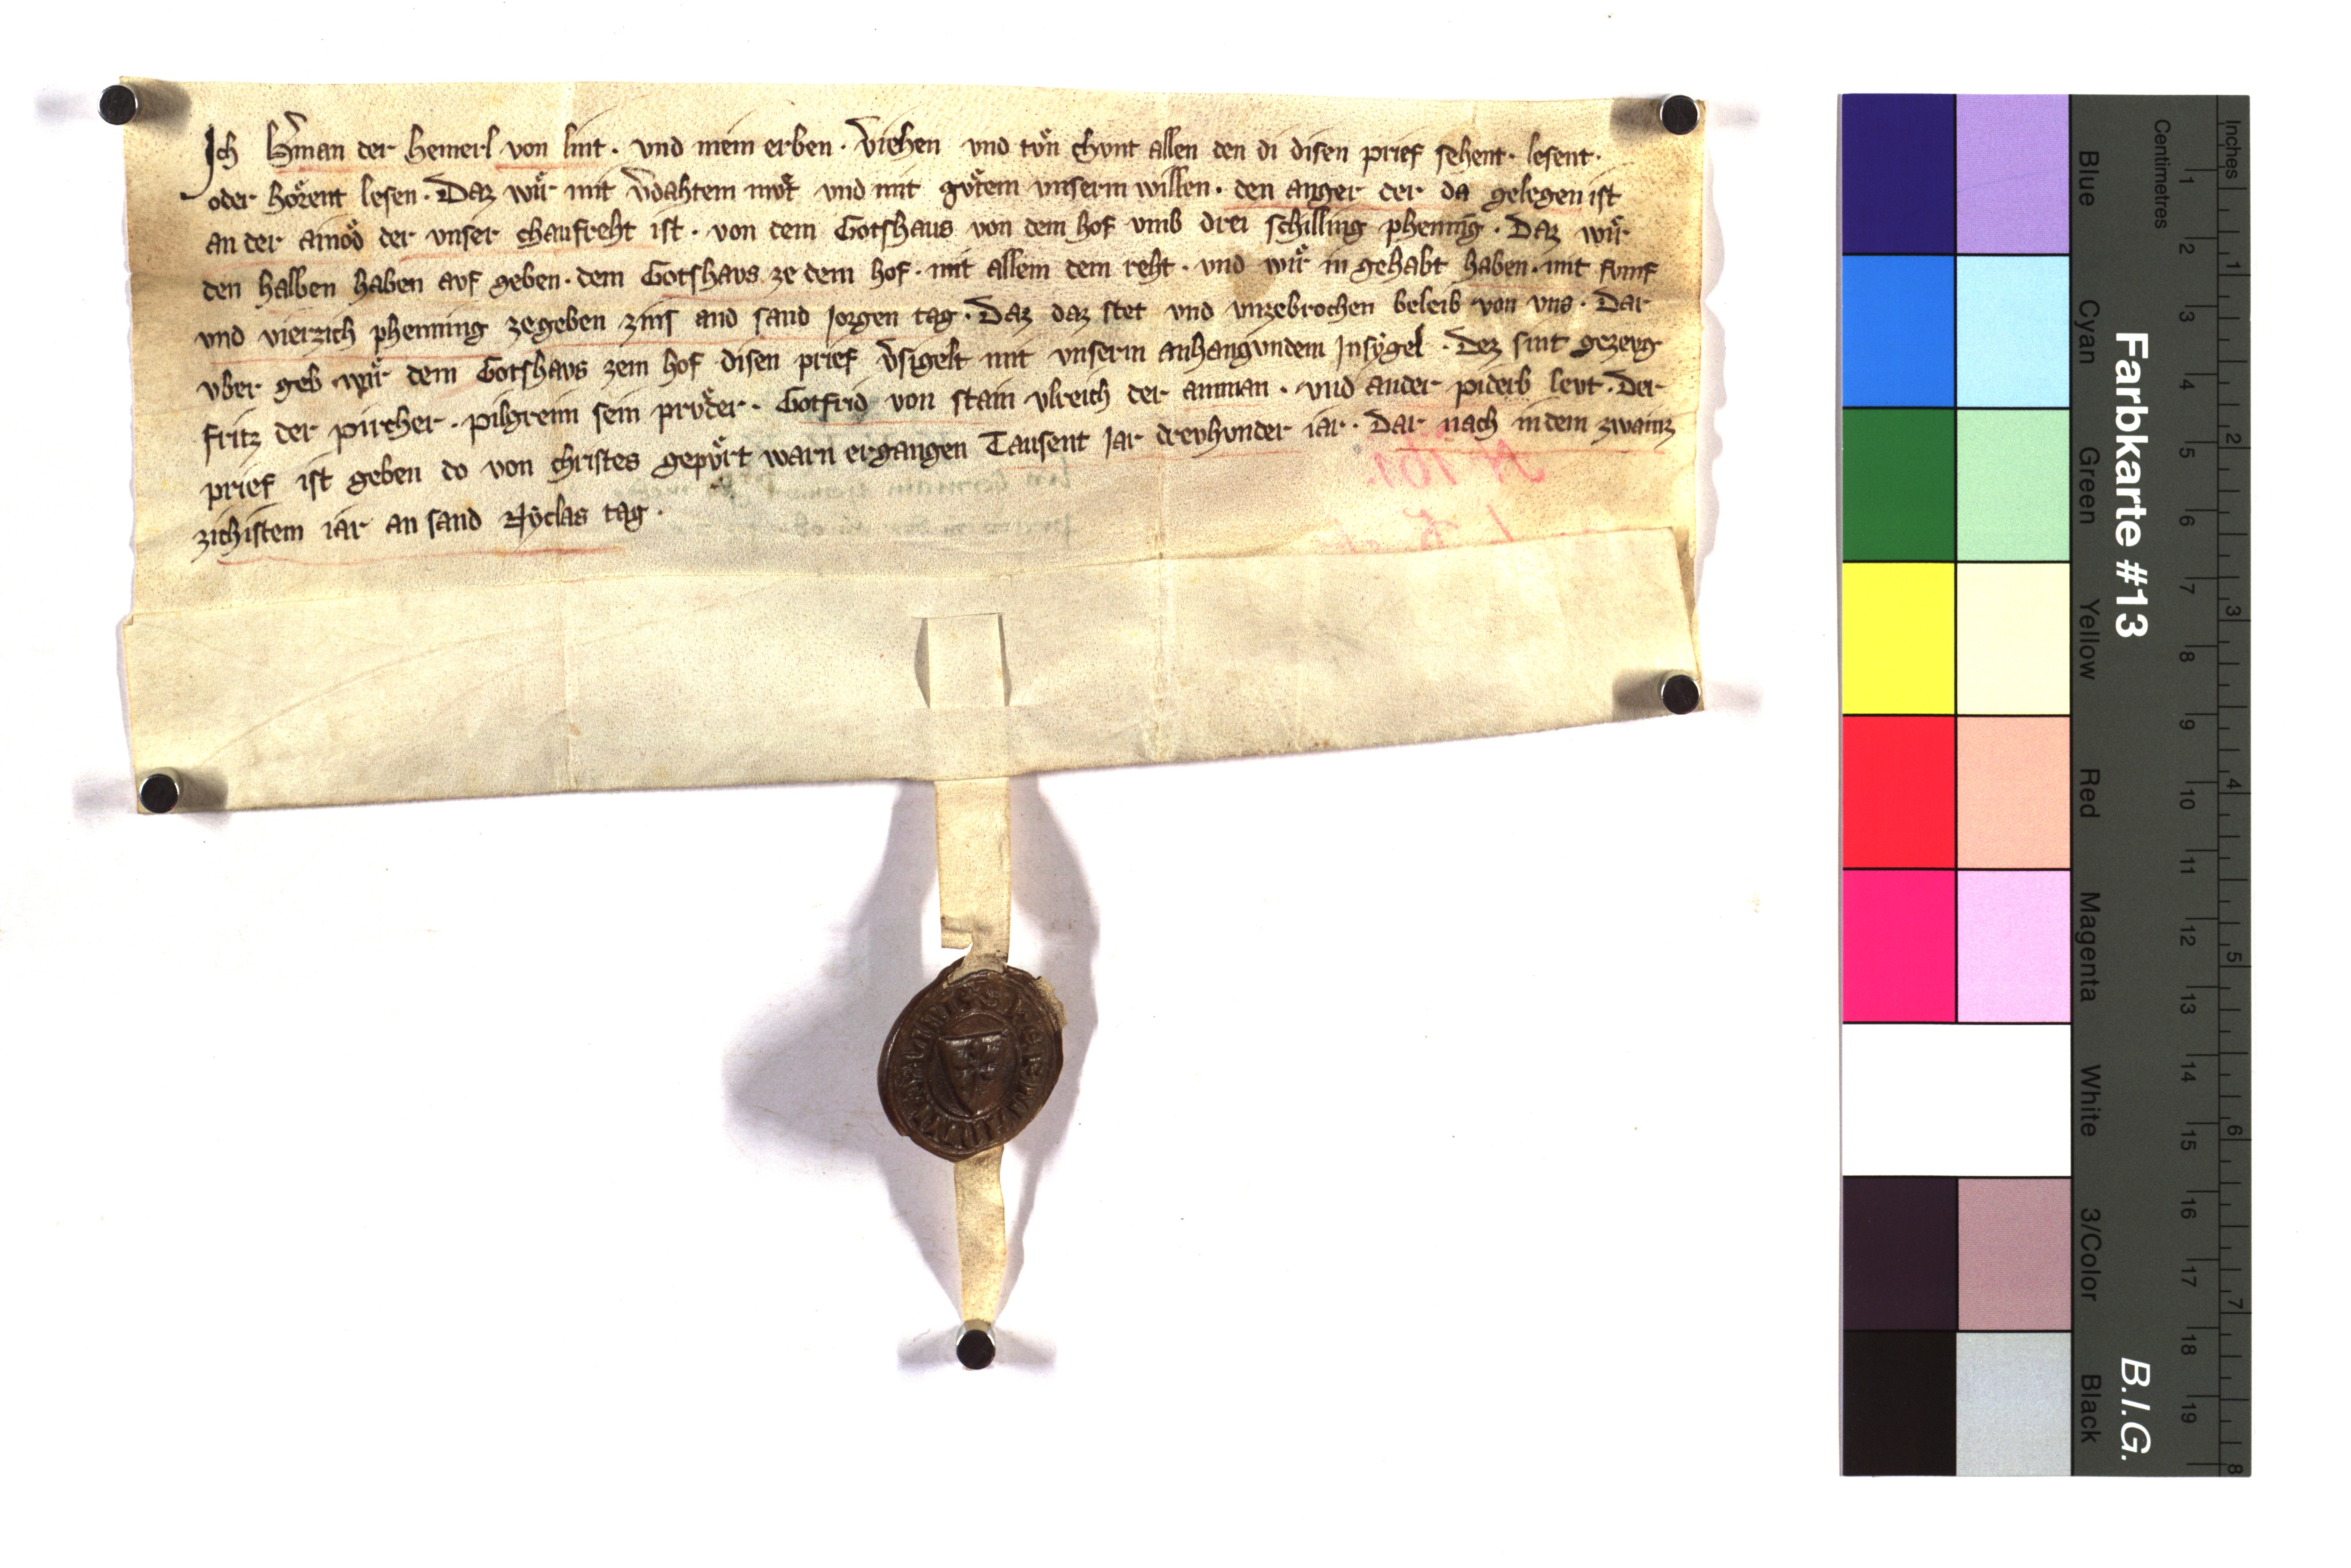 Ich h̄man der hemerl von lint · vnd mein erben · v̄iehen vnd tvͦn chvnt allen den di disen prief sehent · lesent ·
oder hoͤrent lesen · Daz wiͤr mit v̄dahtem mvͦt vnd mit gvͦtem vnserm willen · den anger der da gelegen ist
an der ainoͤd der vnser chaufreht ist · von dem Gotshaus von dem hof vmb drei schilling phennig · Daz wiͤr
den halben haben avf geben · dem Gotshavs ze dem hof · mit allem dem reht · vnd wiͤr in gehabt haben · mit fvmf
vnd vierzich phenning zegeben zins and sand Jorgen tag · Daz daz stet vnd vnzebrochen beleib von vns · Dar
vber geb wiͤr dem Gotshavs zem hof disen prief v̄sigelt mit vnserm anhangvndem Insygel · Dez sint gezevg
fritz der pircher · pilgreim sein prvͦder · Gotfrid von stain vlreich der amman · vnd ander piderb levt · Der
prief ist geben do von christes gepvͤrt warn ergangen Tausent Jar drevhvnder iar · Dar nach in dem zwainz
zichistem iar an sand Nyclas tag ·
N 101
Farbkarte #13
B.I.G.
Blue Cyan Green Yellow Red Magenta White 3/Color Black
Centimetres
1 2 3 4 5 6 7 8 9 10 11 12 13 14 15 16 17 18 19
Inches
1 2 3 4 5 6 7 8